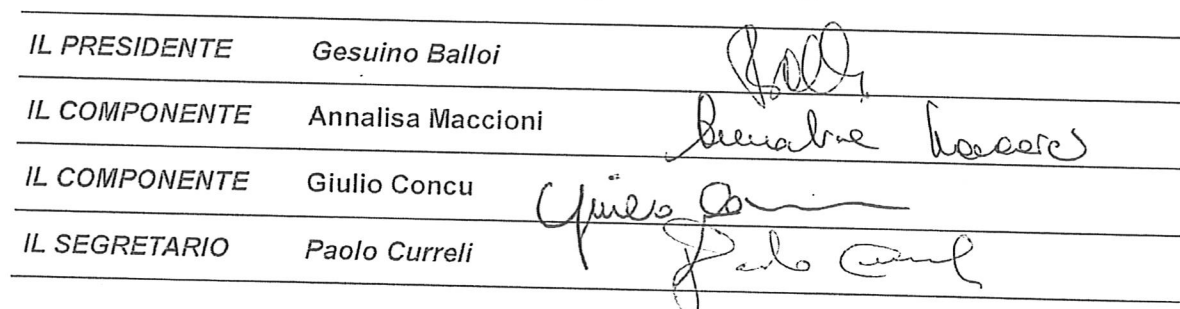 IL PRESIDENTE Gesuino Balloi
IL COMPONENTE Annalisa Maccioni
IL COMPONENTE Giulio Concu Giulio
IL SEGRETARIO Paolo Curreli Paolo